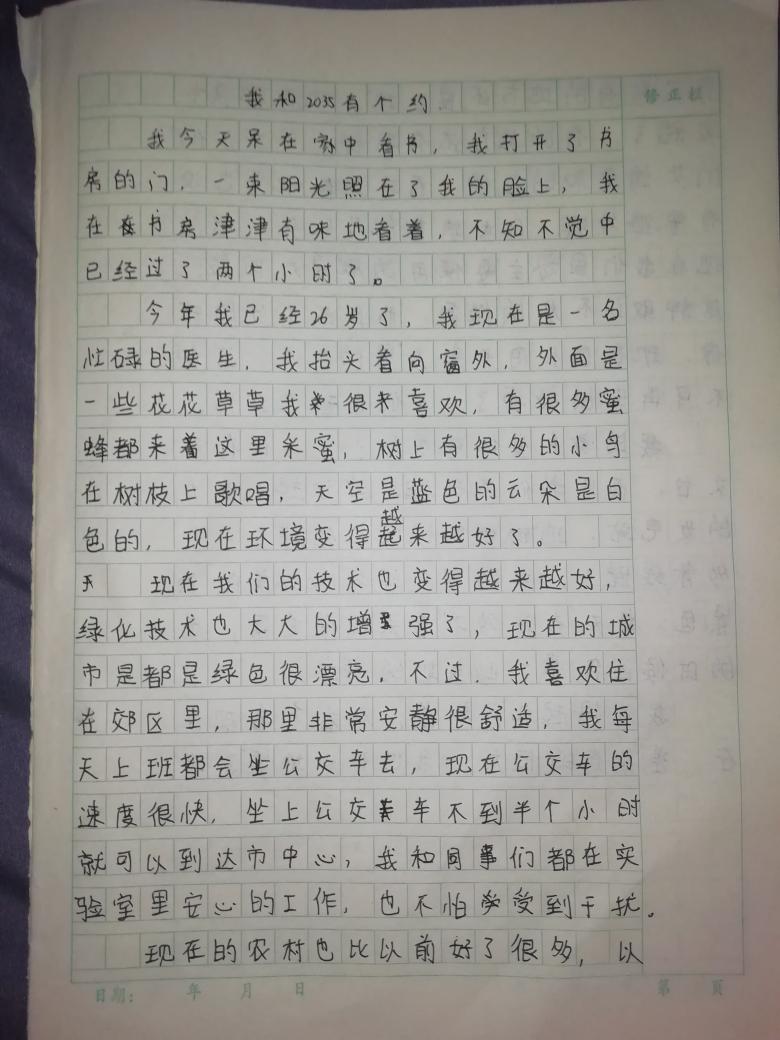 我和2035有个约
修正栏
我今天呆在家中看书，我打开了书
房的门，一束阳光照在了我的脸上，我
在书房津津有味地看着，不知不觉中
已经过了两个小时了。
今年我已经26岁了，我现在是一名
忙碌的医生，我抬头看向窗外，外面是
一些花花草草我很喜欢，有很多蜜
蜂都来着这里米蜜，树上有很多的小鸟
在树枝上歌唱，天空是蓝色的云朵是白
色的，现在环境变得越来越好了。
现在我们的技术也变得越来越好，
绿化技术也大大的增强了，现在的城
市是都是绿色很漂亮，不过，我喜欢住
在郊区里，那里非常安静很舒适，我每
天上班都会坐公交车去，现在公交车的
速度很快，坐上公交车不到半个小时
就可以到达市中心，我和同事们都在实
验室里安心的工作，也不怕受到干扰。
现在的农村也比以前好了很多，以
日期： 年 月 日 第 页